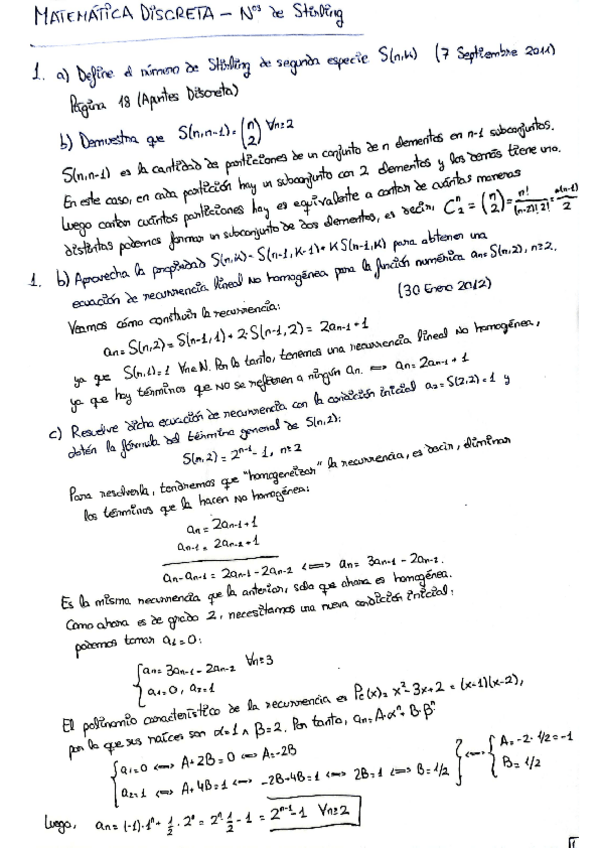 MATEMÁTICA DISCRETA – Nºs de Stirling
1. a) Define el número de Stirling de segunda especie S(n,k) (7 Septiembre 2011)
Página 18 (Apuntes Discreta)
b) Demuestra que S(n,n-1) = (n 2) ∀n≥2
S(n,n-1) es la cantidad de particiones de un conjunto de n elementos en n-1 subconjuntos.
En este caso, en cada partición hay un subconjunto con 2 elementos y los demás tiene uno.
Luego contar cuántas particiones hay es equivalente a contar de cuántas maneras
distintas podemos formar un subconjunto de dos elementos, es decir, C₂ⁿ = (n 2) = n!/(n-2)!2! = n(n-1)/2
1. b) Aprovecha la propiedad S(n,k) = S(n-1,k-1) + KS(n-1,k) para obtener una
ecuación de recurrencia lineal no homogénea para la función numérica an = S(n,2), n≥2.
(30 Enero 2012)
Veamos cómo construir la recurrencia:
an = S(n,2) = S(n-1,1) + 2·S(n-1,2) = 2an-1 + 1
ya que S(n,1)=1 ∀n∈N. Por lo tanto, tenemos una recurrencia lineal no homogénea,
ya que hay términos que no se refieren a ningún an. ⟹ an = 2an-1 + 1
c) Resuelve dicha ecuación de recurrencia con la condición inicial a₂ = S(2,2) = 1 y
obtén la fórmula del término general de S(n,2):
S(n,2) = 2ⁿ⁻¹ - 1, n≥2
Para resolverla, tendremos que "homogeneizar" la recurrencia, es decir, eliminar
los términos que la hacen no homogénea:
an = 2an-1 + 1
an-1 = 2an-2 + 1
an - an-1 = 2an-1 - 2an-2 ⟺ an = 3an-1 - 2an-2.
Es la misma recurrencia que la anterior, solo que ahora es homogénea.
Como ahora es de grado 2, necesitamos una nueva condición inicial:
podemos tomar a₁=0:
{ an = 3an-1 - 2an-2 ∀n≥3
a₁=0, a₂=1
El polinomio característico de la recurrencia es Pc(x) = x² - 3x + 2 = (x-1)(x-2),
por lo que sus raíces son α=1 ∧ β=2. Por tanto, an = A·αⁿ + B·βⁿ
{ a₁=0 ⟺ A+2B=0 ⟺ A=-2B
a₂=1 ⟺ A+4B=1 ⟺ -2B+4B=1 ⟺ 2B=1 ⟺ B=1/2 } ⟺ { A=-2·1/2=-1
B=1/2
Luego, an = (-1)·1ⁿ + 1/2·2ⁿ = 2ⁿ·1/2 - 1 = 2ⁿ⁻¹ - 1 ∀n≥2
1